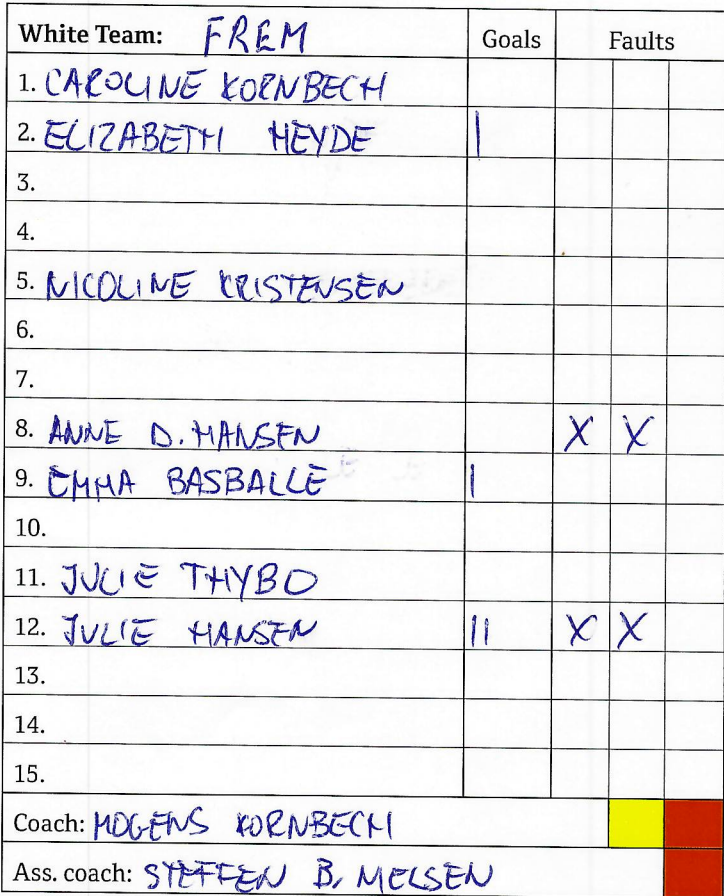 White Team: FREM Goals Faults
1. CAROLINE KORNBECH
2. ELIZABETH HEYDE |
3.
4.
5. NICOLINE KRISTENSEN
6.
7.
8. ANNE D. HANSEN X X
9. EMMA BASBALLE |
10.
11. JULIE THYBO
12. JULIE HANSEN || X X
13.
14.
15.
Coach: MOGENS KORNBECH
Ass. coach: STEFFEN B. MELSEN